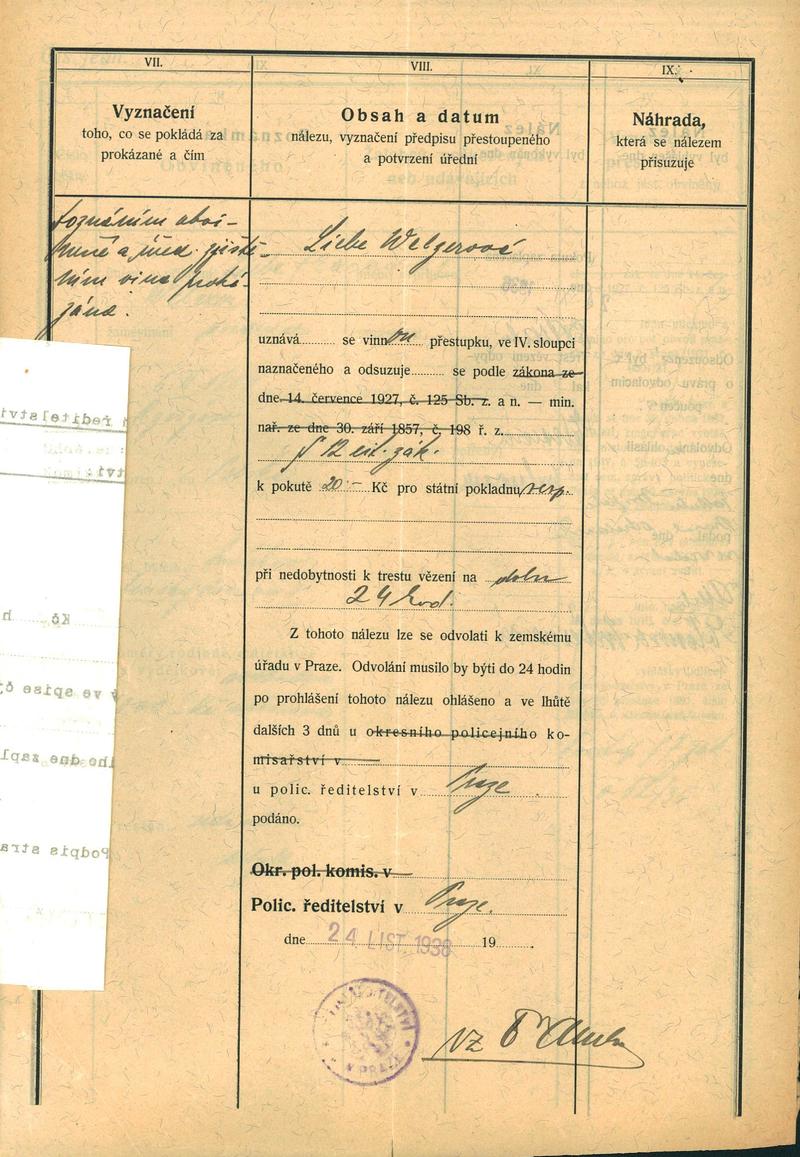 VII.
Vyznačení
toho, co se pokládá za
prokázané a čím
VIII.
Obsah a datum
nálezu, vyznačení předpisu přestoupeného
a potvrzení úřední
IX.
Náhrada,
která se nálezem
přisuzuje
doznáním obvi-
něné a úřed. zjiště-
ním vina proká-
zána.
Liebe Welgerová
uznává se vinnou přestupku, ve IV. sloupci
naznačeného a odsuzuje se podle zákona ze
dne 14. července 1927, č. 125 Sb. z. a n. — min.
nař. ze dne 30. září 1857, č. 198 ř. z.
§ 12 cit. zák.
k pokutě 20.- Kč pro státní pokladnu, resp.
při nedobytnosti k trestu vězení na dobu
24 hod.
Z tohoto nálezu lze se odvolati k zemskému
úřadu v Praze. Odvolání musilo by býti do 24 hodin
po prohlášení tohoto nálezu ohlášeno a ve lhůtě
dalších 3 dnů u okresního policejního ko-
misařství v
u polic. ředitelství v Praze
podáno.
Okr. pol. komis. v
Polic. ředitelství v Praze.
dne 24 LIST 1938 19
ŘEDITELSTVÍ
V PRAZE
vz Dr
ředitelství
ství:
Kč h
ý ve spise čj
ího dne zapl
Podpis stra